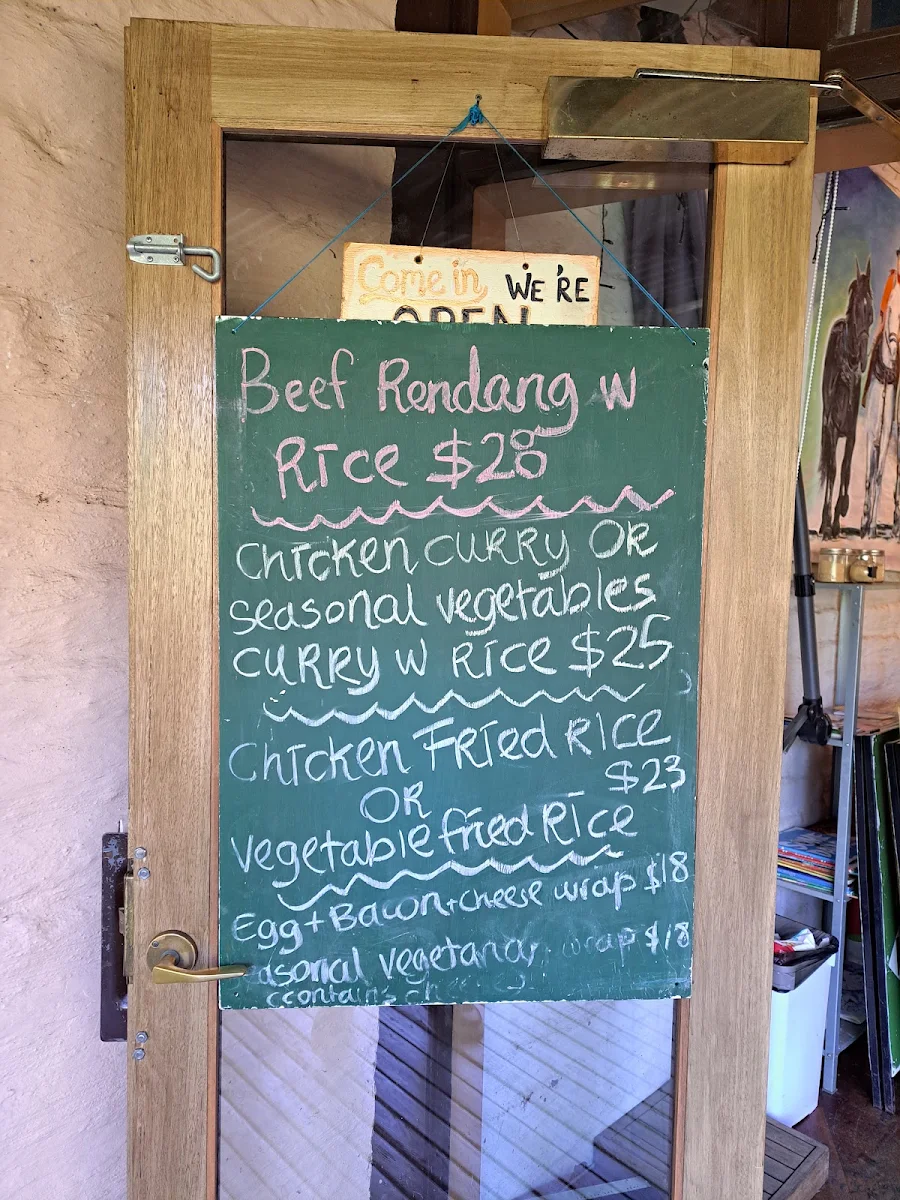 Come in WE'RE
OPEN
Beef Rendang w
Rice $28
Chicken curry OR
seasonal vegetables
curry w Rice $25
Chicken Fried Rice
$23
OR
Vegetable fried Rice
Egg + Bacon + cheese wrap $18
asonal vegetarian wrap $18
ccontains